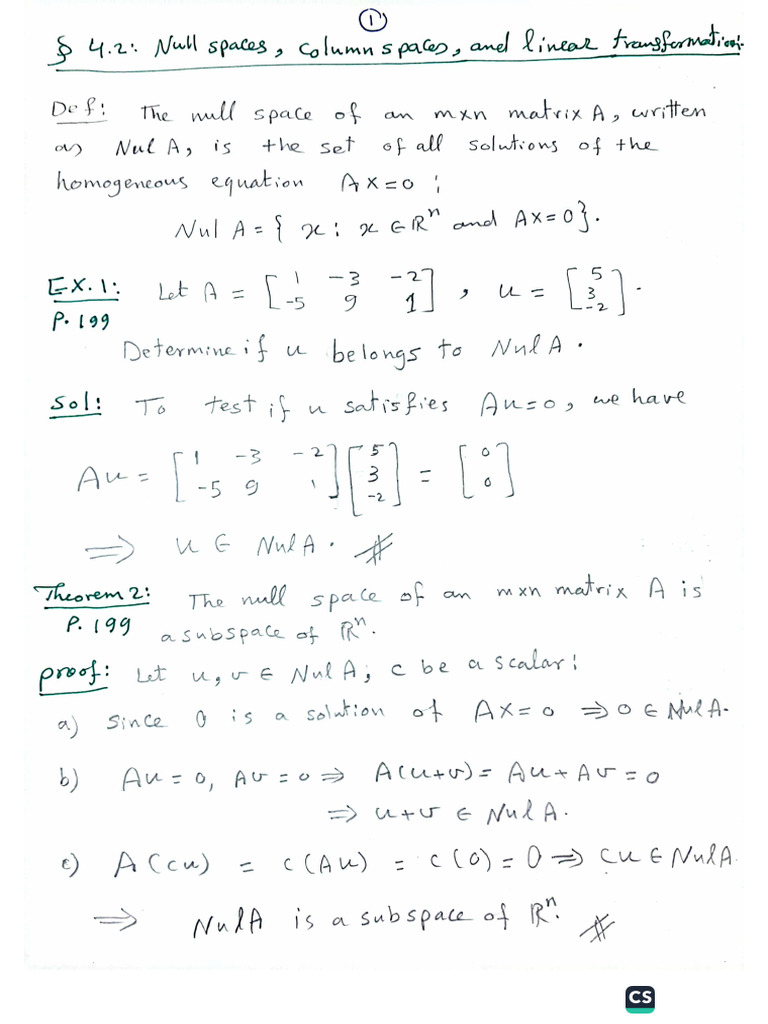 ①
§ 4.2: Null spaces, column spaces, and linear transformations:
Def: The null space of an mxn matrix A, written
as Nul A, is the set of all solutions of the
homogeneous equation AX=0 ;
Nul A = { x : x ∈ ℝⁿ and AX=0}.
EX.1: Let A = [1 -3 -2; -5 9 1], u = [5; 3; -2].
P.199
Determine if u belongs to Nul A.
Sol: To test if u satisfies Au=0, we have
Au = [1 -3 -2; -5 9 1][5; 3; -2] = [0; 0]
⟹ u ∈ Nul A. #
Theorem 2: The null space of an mxn matrix A is
P.199 a subspace of ℝⁿ.
proof: Let u, v ∈ Nul A, c be a scalar:
a) since 0 is a solution of AX=0 ⟹ 0 ∈ Nul A.
b) Au = 0, Av = 0 ⟹ A(u+v) = Au + Av = 0
⟹ u+v ∈ Nul A.
c) A(cu) = c(Au) = c(0) = 0 ⟹ cu ∈ Nul A.
⟹ Nul A is a subspace of ℝⁿ. #
CS